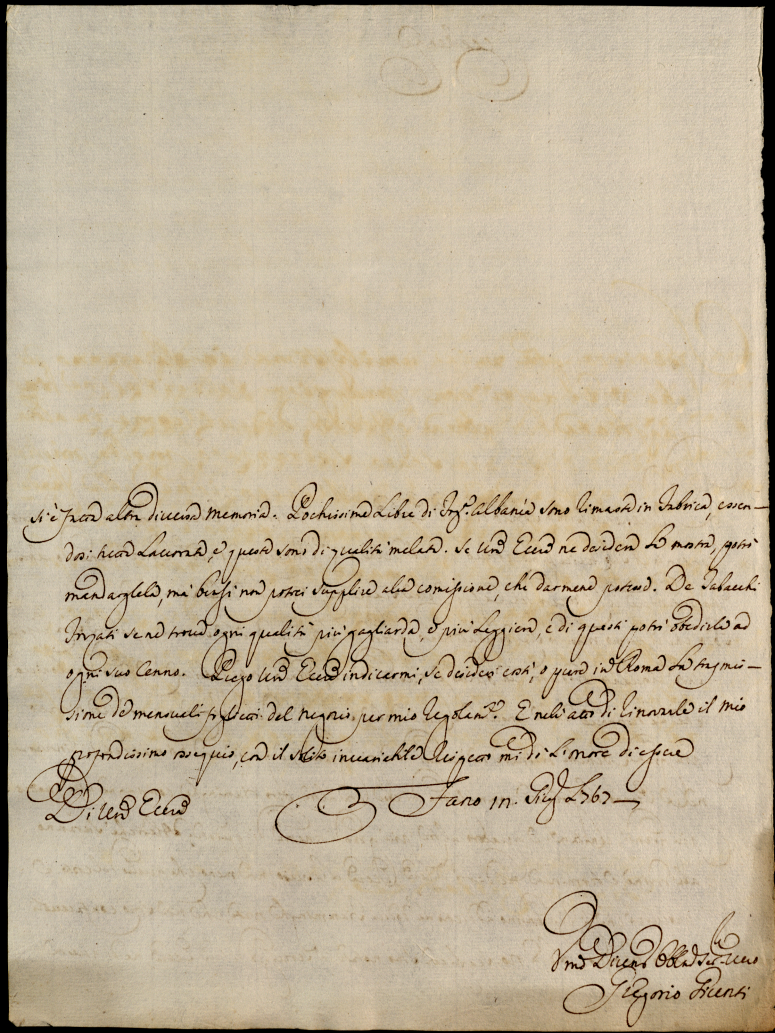 si è fatta altra diversa memoria. Pochissime Libre di Albania sono rimaste in Fabrica, essen-
dosi tutta Lavorata, e queste sono di qualità melata. Se Ecc. ne desidera la mostra, potrò
mandargliela, ma bensì non potrei supplire alla comissione, che darmene potesse. De Tabacchi
se ne trova ogni qualità più gagliarda, e più Leggiera, e di questi potrò obedirla ad
ogni suo Cenno. Prego Ecc. indicarmi, se desideri costì, o pure in Roma la trasmis-
sione de mensuali del Negozio per mio Regolam.to. E nell'atto di rinovarle il mio
profondissimo ossequio, con il solito invariabile Rispetto mi dò L'onore di essere
Di Ecc.
Fano 1767
Gregorio